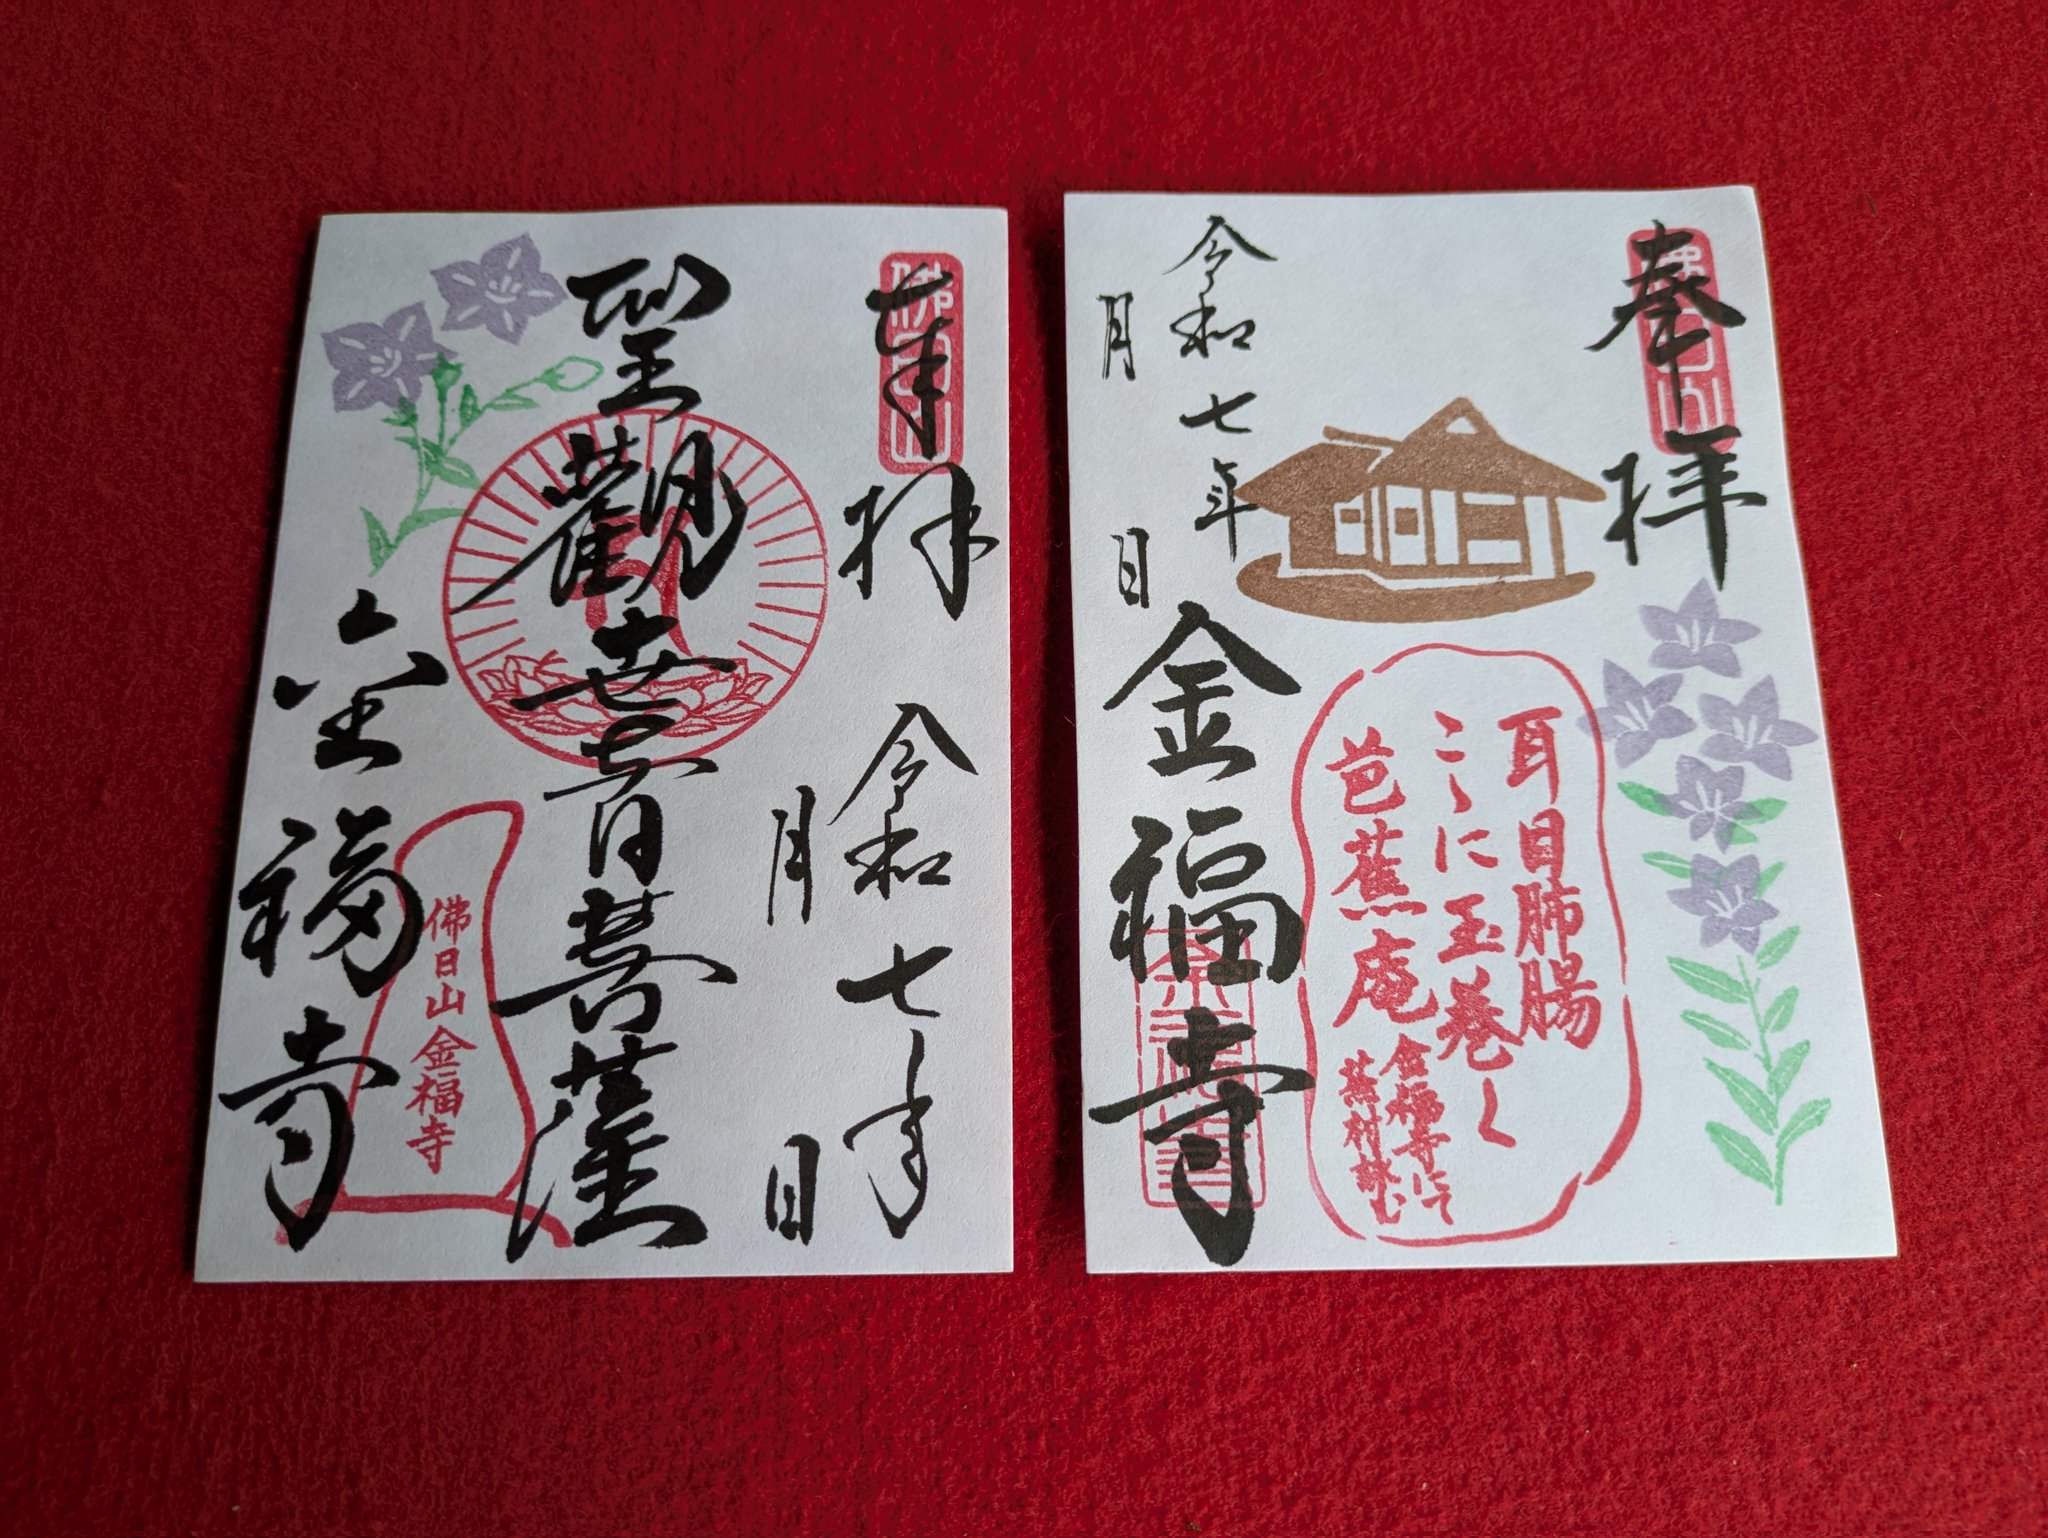 奉拝
佛日山
令和七年
月 日
聖觀世音菩薩
金福寺
佛日山金福寺
奉拝
佛日山
耳目肺腸
こゝに玉巻く
芭蕉庵
金福寺にて
蕪村詠む
令和七年
月 日
金福寺
金福寺